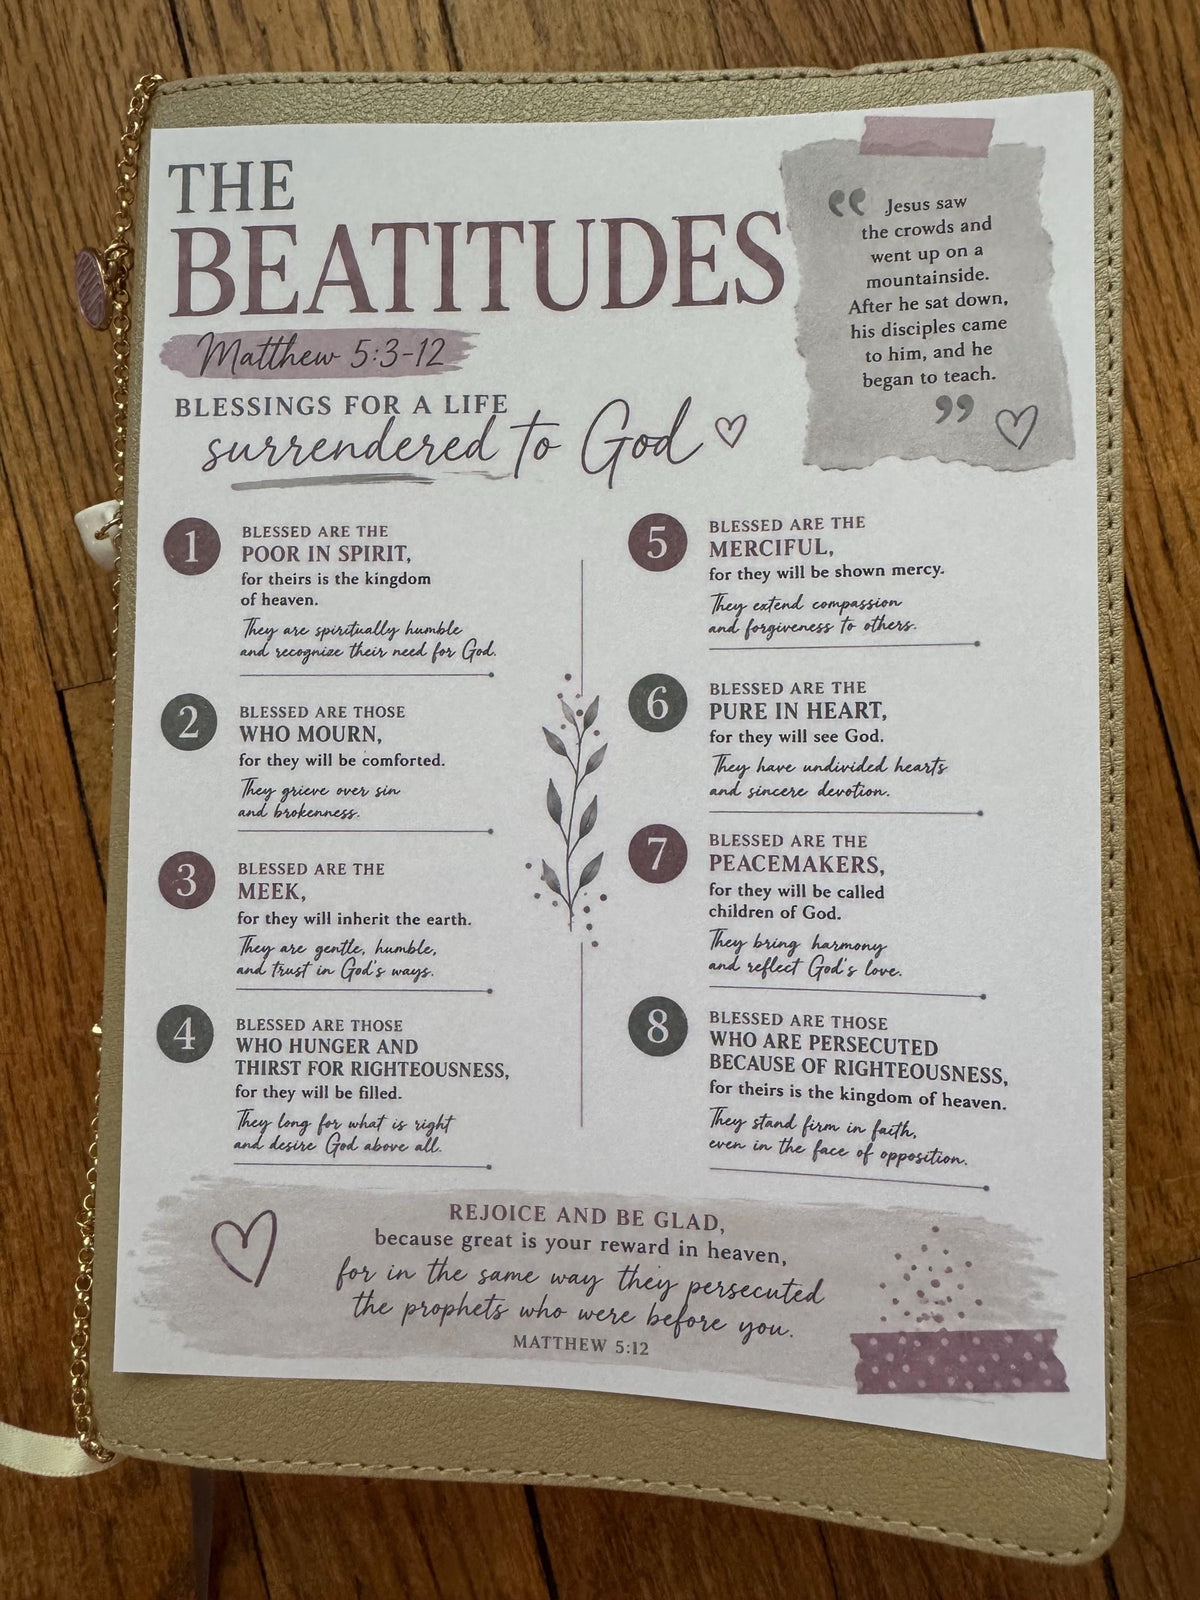 THE
BEATITUDES
Matthew 5:3-12
BLESSINGS FOR A LIFE
surrendered to God
“ Jesus saw
the crowds and
went up on a
mountainside.
After he sat down,
his disciples came
to him, and he
began to teach.
”
1
BLESSED ARE THE
POOR IN SPIRIT,
for theirs is the kingdom
of heaven.
They are spiritually humble
and recognize their need for God.
2
BLESSED ARE THOSE
WHO MOURN,
for they will be comforted.
They grieve over sin
and brokenness.
3
BLESSED ARE THE
MEEK,
for they will inherit the earth.
They are gentle, humble,
and trust in God's ways.
4
BLESSED ARE THOSE
WHO HUNGER AND
THIRST FOR RIGHTEOUSNESS,
for they will be filled.
They long for what is right
and desire God above all.
5
BLESSED ARE THE
MERCIFUL,
for they will be shown mercy.
They extend compassion
and forgiveness to others.
6
BLESSED ARE THE
PURE IN HEART,
for they will see God.
They have undivided hearts
and sincere devotion.
7
BLESSED ARE THE
PEACEMAKERS,
for they will be called
children of God.
They bring harmony
and reflect God's love.
8
BLESSED ARE THOSE
WHO ARE PERSECUTED
BECAUSE OF RIGHTEOUSNESS,
for theirs is the kingdom of heaven.
They stand firm in faith,
even in the face of opposition.
REJOICE AND BE GLAD,
because great is your reward in heaven,
for in the same way they persecuted
the prophets who were before you.
MATTHEW 5:12